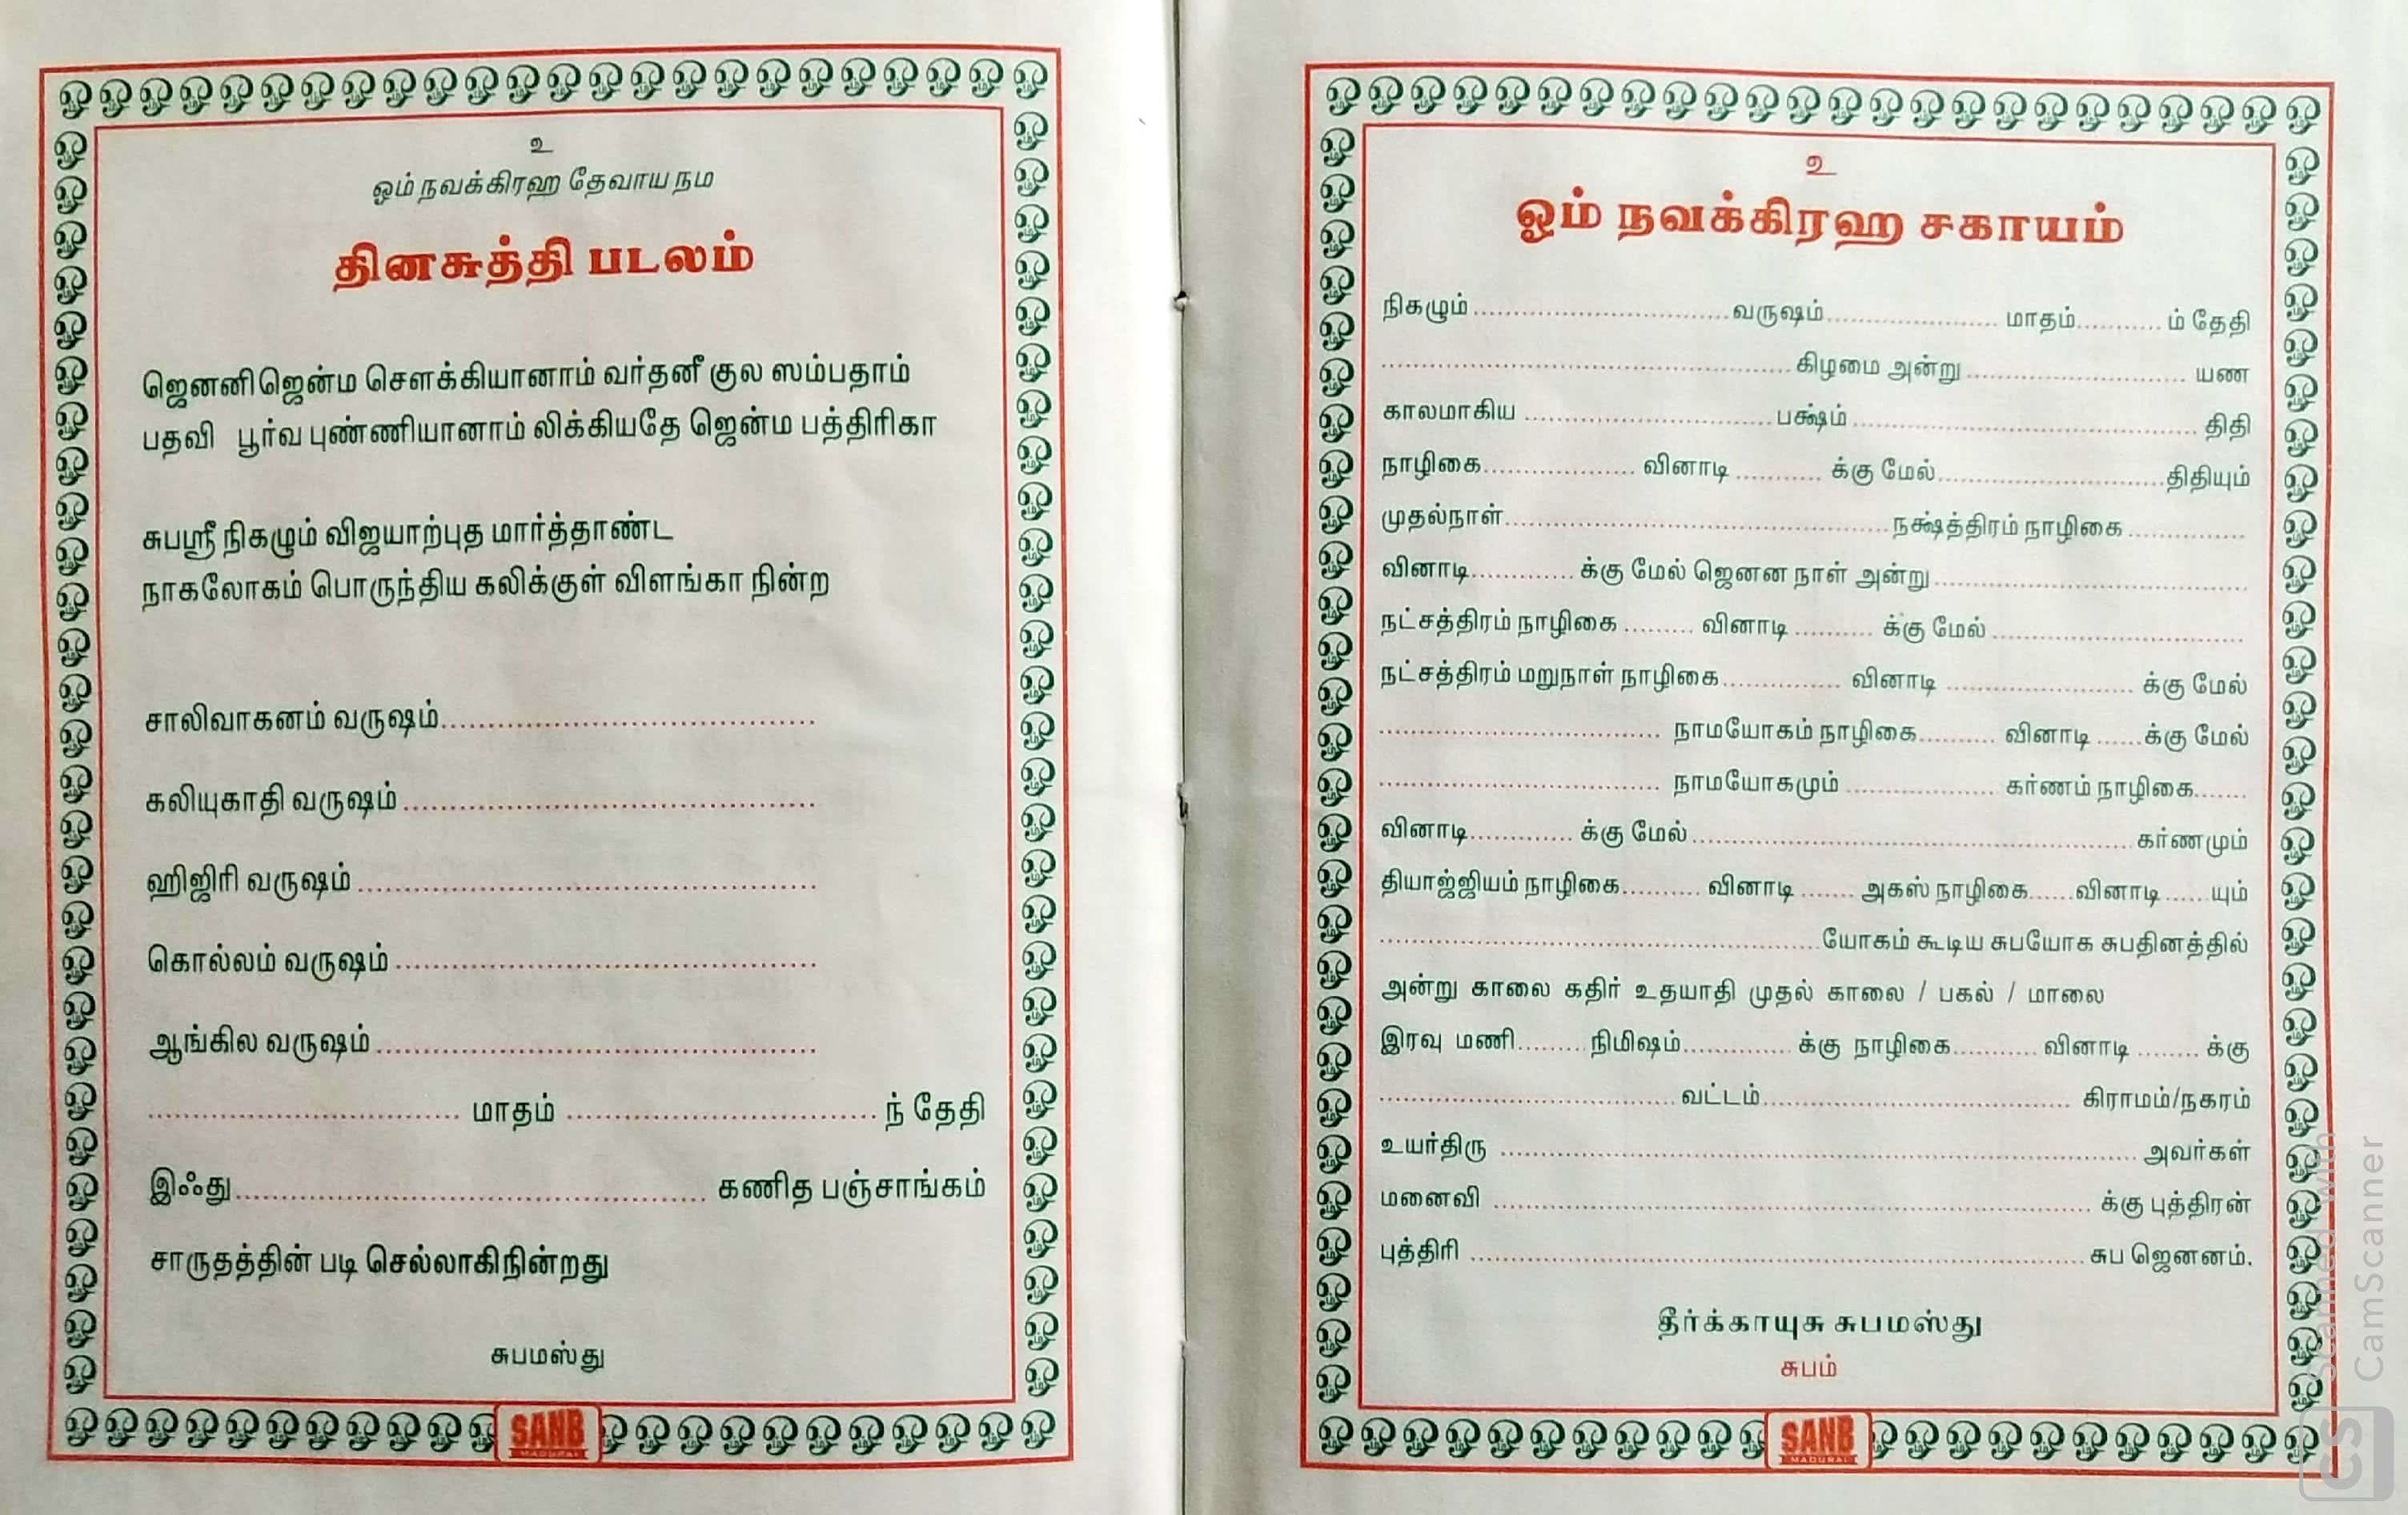 உ
ஓம் நவக்கிரஹ தேவாய நம
தினசுத்தி படலம்
ஜெனனி ஜென்ம சௌக்கியானாம் வர்தனீ குல ஸம்பதாம்
பதவி பூர்வ புண்ணியானாம் லிக்கியதே ஜென்ம பத்திரிகா
சுபஸ்ரீ நிகழும் விஜயாற்புத மார்த்தாண்ட
நாகலோகம் பொருந்திய கலிக்குள் விளங்கா நின்ற
சாலிவாகனம் வருஷம்..............................
கலியுகாதி வருஷம்..............................
ஹிஜிரி வருஷம்..............................
கொல்லம் வருஷம்..............................
ஆங்கில வருஷம்..............................
.............................. மாதம் .............................. ந் தேதி
இஃது.............................. கணித பஞ்சாங்கம்
சாருதத்தின் படி செல்லாகிநின்றது
சுபமஸ்து
SANB
MADURAI
உ
ஓம் நவக்கிரஹ சகாயம்
நிகழும்....................வருஷம்.................... மாதம்.......... ம் தேதி
..............................கிழமை அன்று.................... யண
காலமாகிய ....................பக்ஷம்.............................. திதி
நாழிகை.............. வினாடி .......... க்கு மேல்....................திதியும்
முதல்நாள்..............................நக்ஷத்திரம் நாழிகை..............
வினாடி............ க்கு மேல் ஜெனன நாள் அன்று..............................
நட்சத்திரம் நாழிகை ......... வினாடி .......... க்கு மேல் ....................
நட்சத்திரம் மறுநாள் நாழிகை.............. வினாடி .................... க்கு மேல்
.............................. நாமயோகம் நாழிகை.......... வினாடி ......க்கு மேல்
.............................. நாமயோகமும் .................... கர்ணம் நாழிகை.......
வினாடி............ க்கு மேல்..............................கர்ணமும்
தியாஜ்ஜியம் நாழிகை.......... வினாடி ....... அகஸ் நாழிகை......வினாடி ...... யும்
..............................யோகம் கூடிய சுபயோக சுபதினத்தில்
அன்று காலை கதிர் உதயாதி முதல் காலை / பகல் / மாலை
இரவு மணி......... நிமிஷம்.............. க்கு நாழிகை.......... வினாடி ........ க்கு
..............................வட்டம்.............................. கிராமம்/நகரம்
உயர்திரு .............................. அவர்கள்
மனைவி .............................. க்கு புத்திரன்
புத்திரி .............................. சுப ஜெனனம்.
தீர்க்காயுசு சுபமஸ்து
சுபம்
SANB
MADURAI
Scanned with
CamScanner
CS